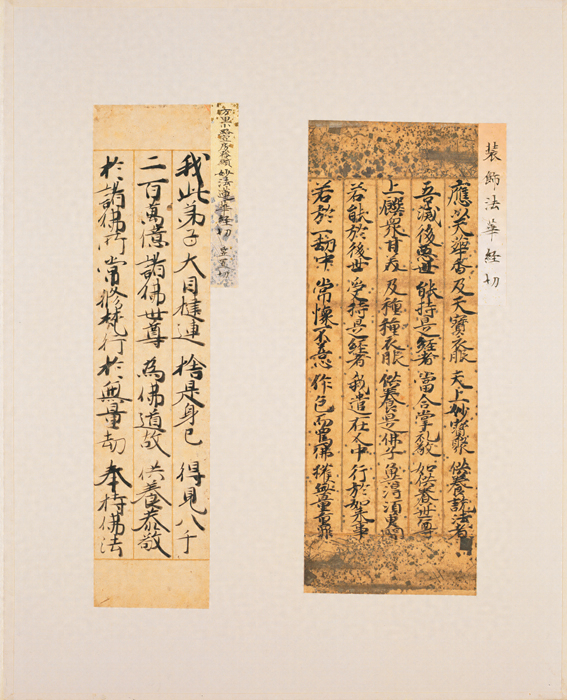 装飾法華経切
應以天華香 及天寶衣服 天上妙寶聚 供養說法者
吾滅後惡世 能持是經者 當合掌礼敬 如供養世尊
上饌眾甘美 及種種衣服 供養是佛子 冀得須臾聞
若能於後世 受持是經者 我遣在人中 行於如来事
若於一劫中 常懷不善心 作色而罵佛 獲無量重罪
妙法蓮華経切
我此弟子 大目揵連 捨是身已 得見八千
二百萬億 諸佛世尊 為佛道故 供養恭敬
於諸佛所 常修梵行 於無量劫 奉持佛法